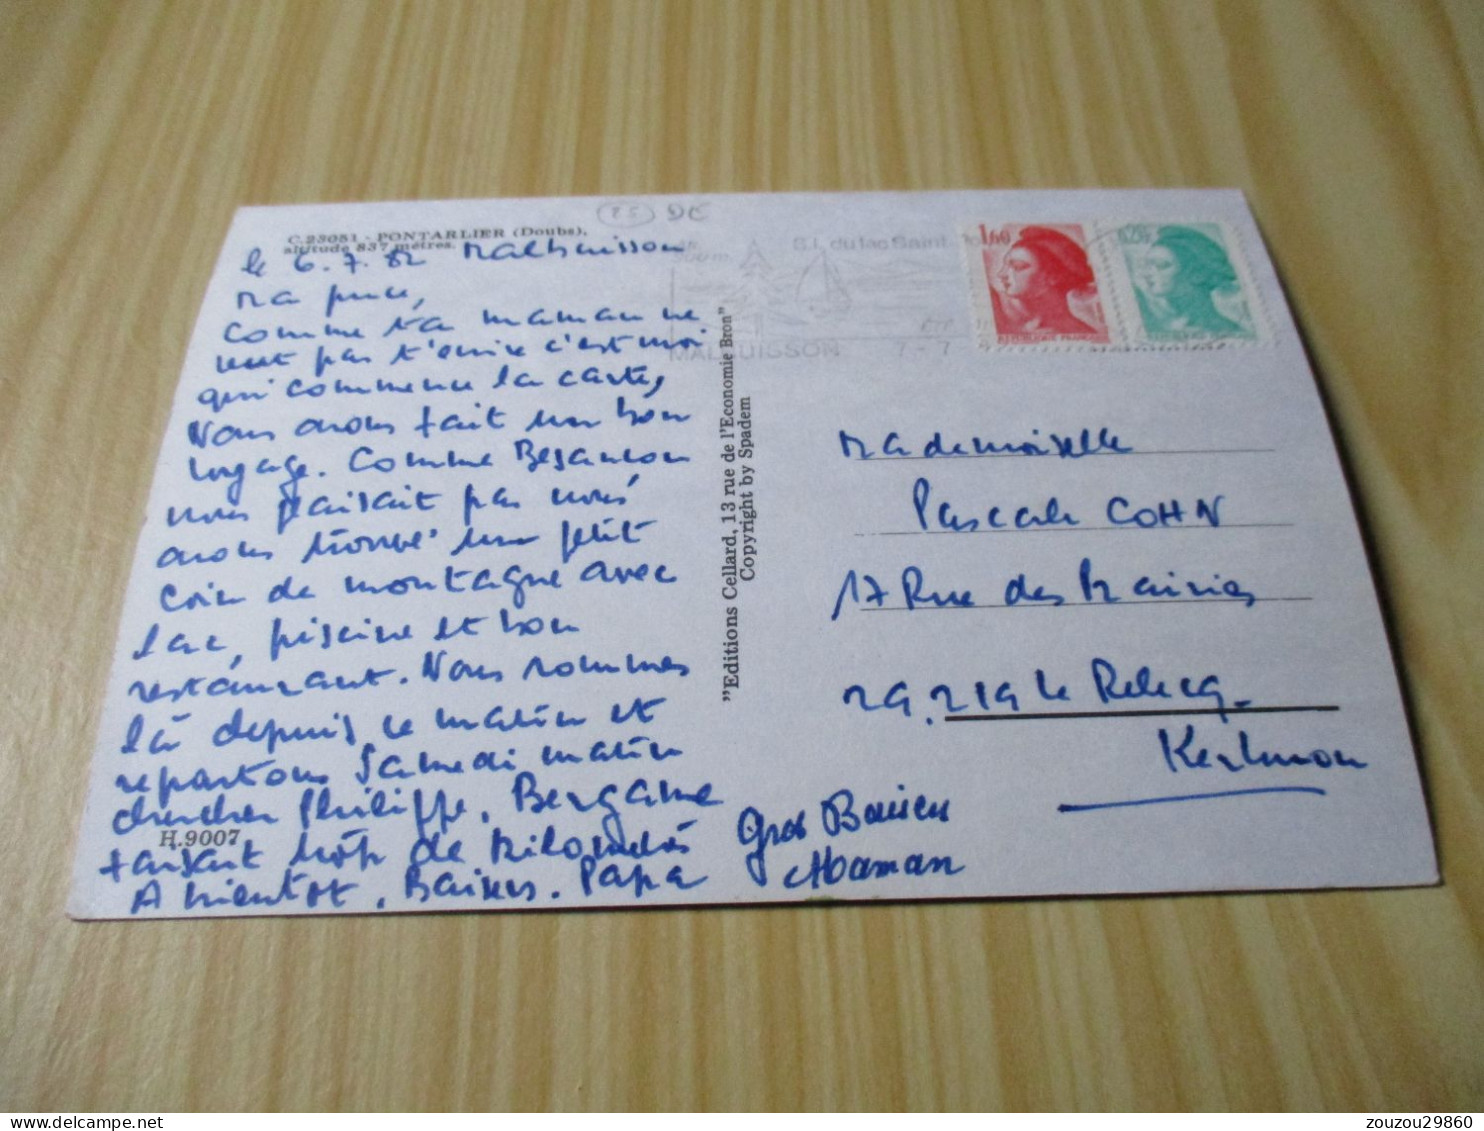 C.23051 - PONTARLIER (Doubs),
altitude 837 mètres.
le 6.7.82 Malbuisson
Ma puce,
Comme ta maman ne
veut pas t'écrire c'est moi
qui commence la carte,
Nous avons fait un bon
voyage. Comme Besancon
nous plaisait pas nous
avons trouvé un petit
coin de montagne avec
lac, piscine et bon
restaurant. Nous sommes
là depuis ce matin et
repartons Samedi matin
chercher Philippe, Bergame
faisant trop de Kilomètres
A bientôt, Baisers. Papa
Gros Baisers
Maman
H.9007
"Editions Cellard, 13 rue de l'Economie Bron"
Copyright by Spadem
25 DE
S.I. du lac Saint-
900 m.
MALBUISSON
7-7
1,60
0,20
Mademoiselle
Pascale COHN
17 Rue des Mairies
29.219 le Relecq-
Kerhuon
zouzou29860